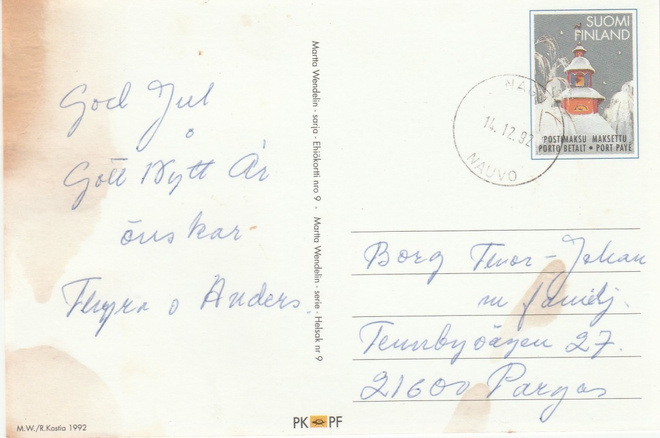 God Jul
o
Gott Nytt År
önskar
Thyra o Anders.
Martta Wendelin - sarja - Ehiökortti nro 9 • Martta Wendelin - serie - Helsak nr 9
M.W./R.Kostia 1992
PK PF
SUOMI
FINLAND
POSTIMAKSU MAKSETTU
PORTO BETALT • PORT PAYÉ
14.12.92
NAUVO
Borg Tenor-Johan
m familj.
21600 Pargas